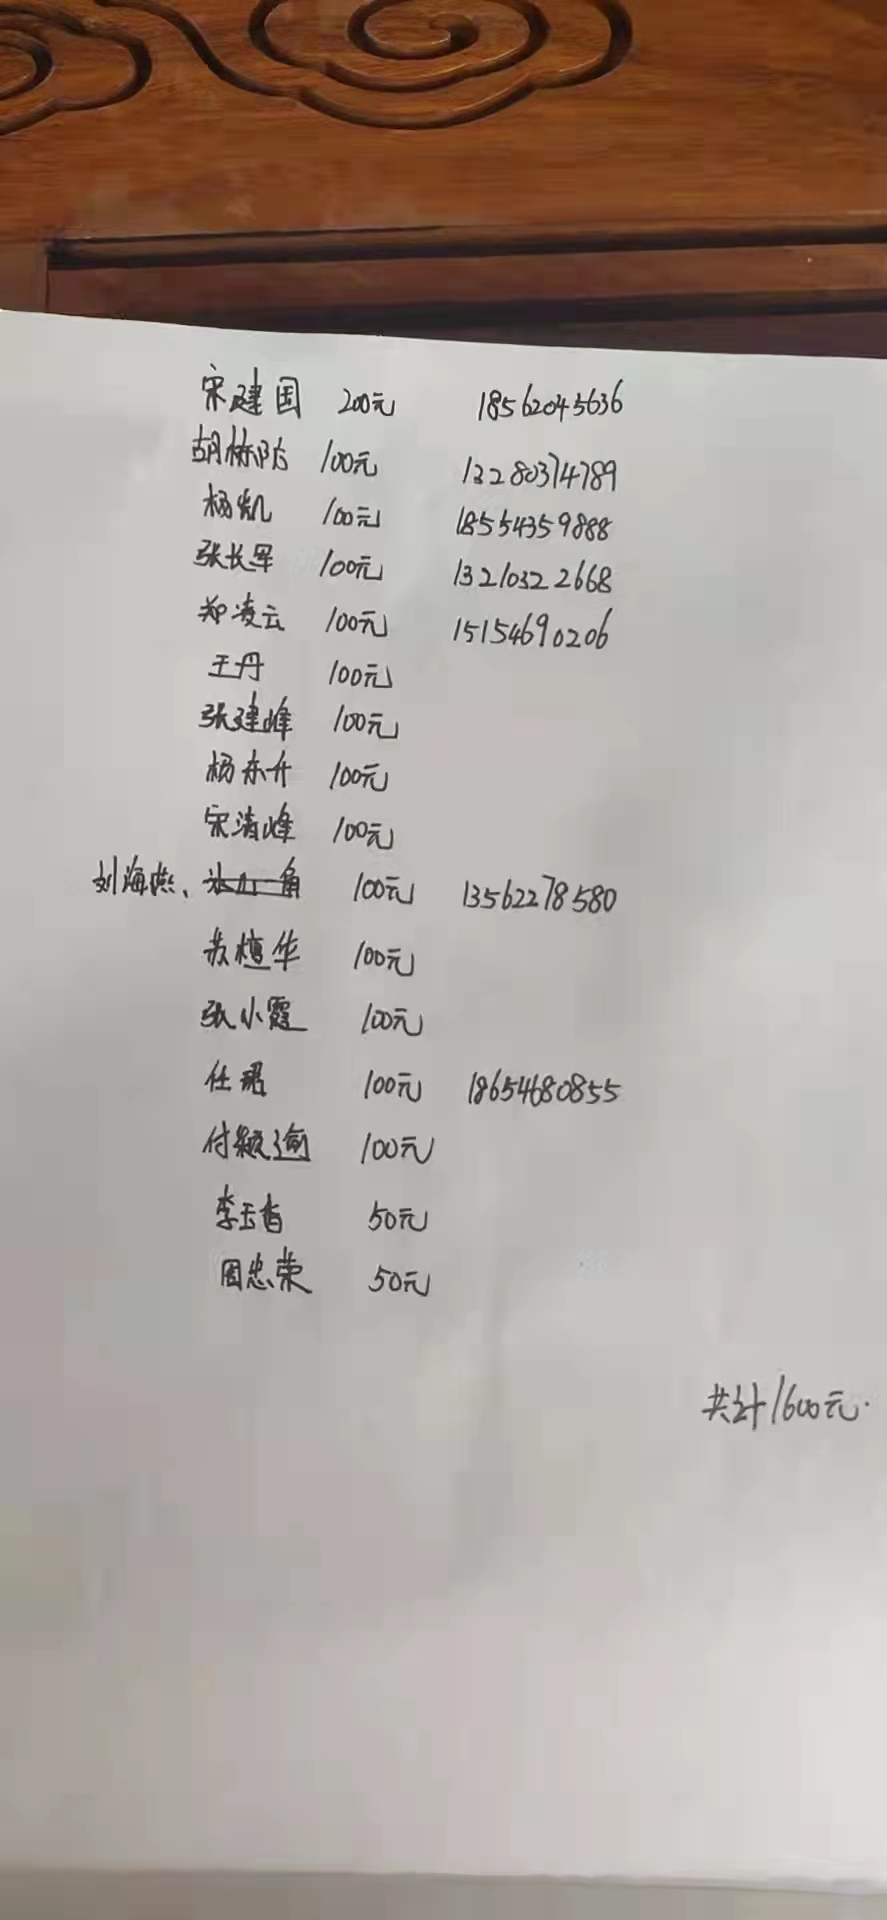 宋建国 200元 18562045636
胡栋防 100元 13280374789
杨凯 100元 18554359888
张长军 100元 13210322668
郑凌云 100元 15154690206
王丹 100元
张建峰 100元
杨东升 100元
宋清峰 100元
刘海燕、 100元 13562278580
苏植华 100元
张小霞 100元
任珺 100元 18654680855
付颖逾 100元
李玉香 50元
周忠荣 50元
共计1600元.